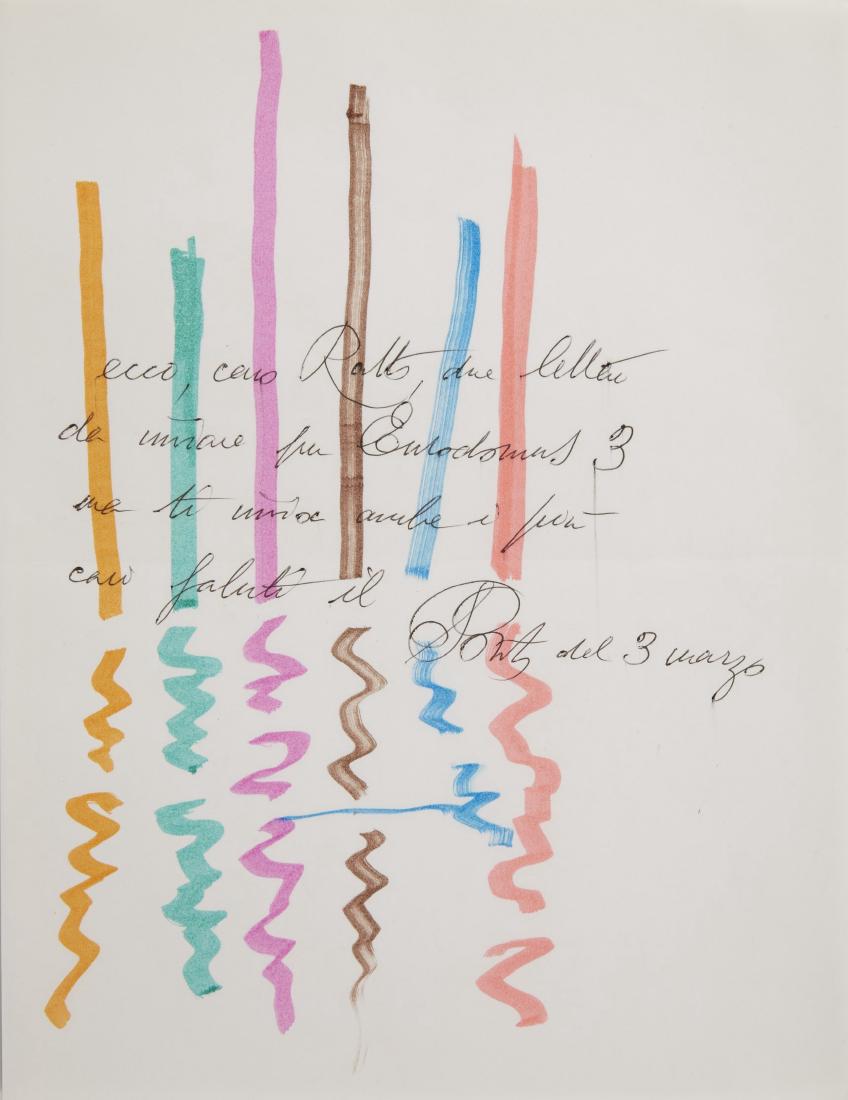 ecco, caro Ratto, due lettere
da inviare per Eurodomus 3
ma ti invio anche i più
cari saluti il
Ponti del 3 marzo